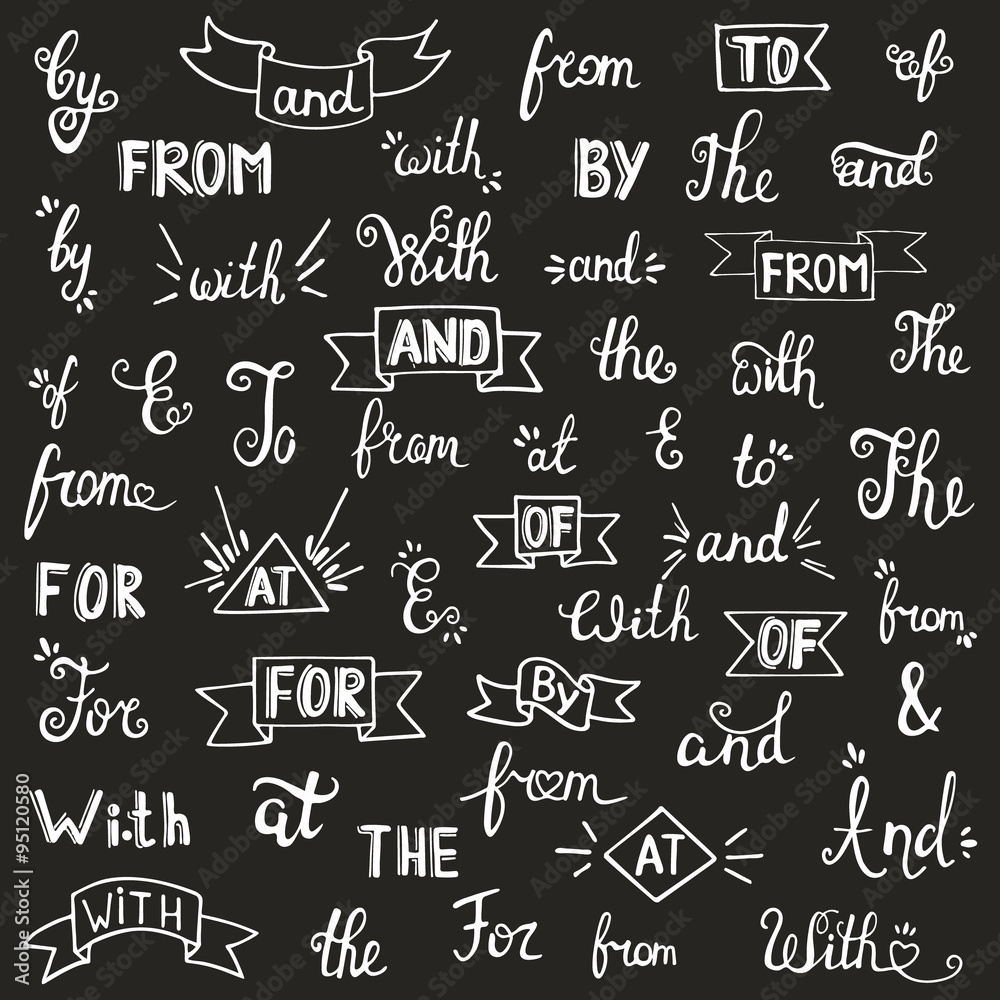 by and from TO of
FROM with BY The and
by with With and FROM
AND the with The
of E To from at E to The
from OF and
FOR AT E With OF from
For FOR By and &
With at from And
THE AT
WiTH the For from With
Adobe Stock | #95120580